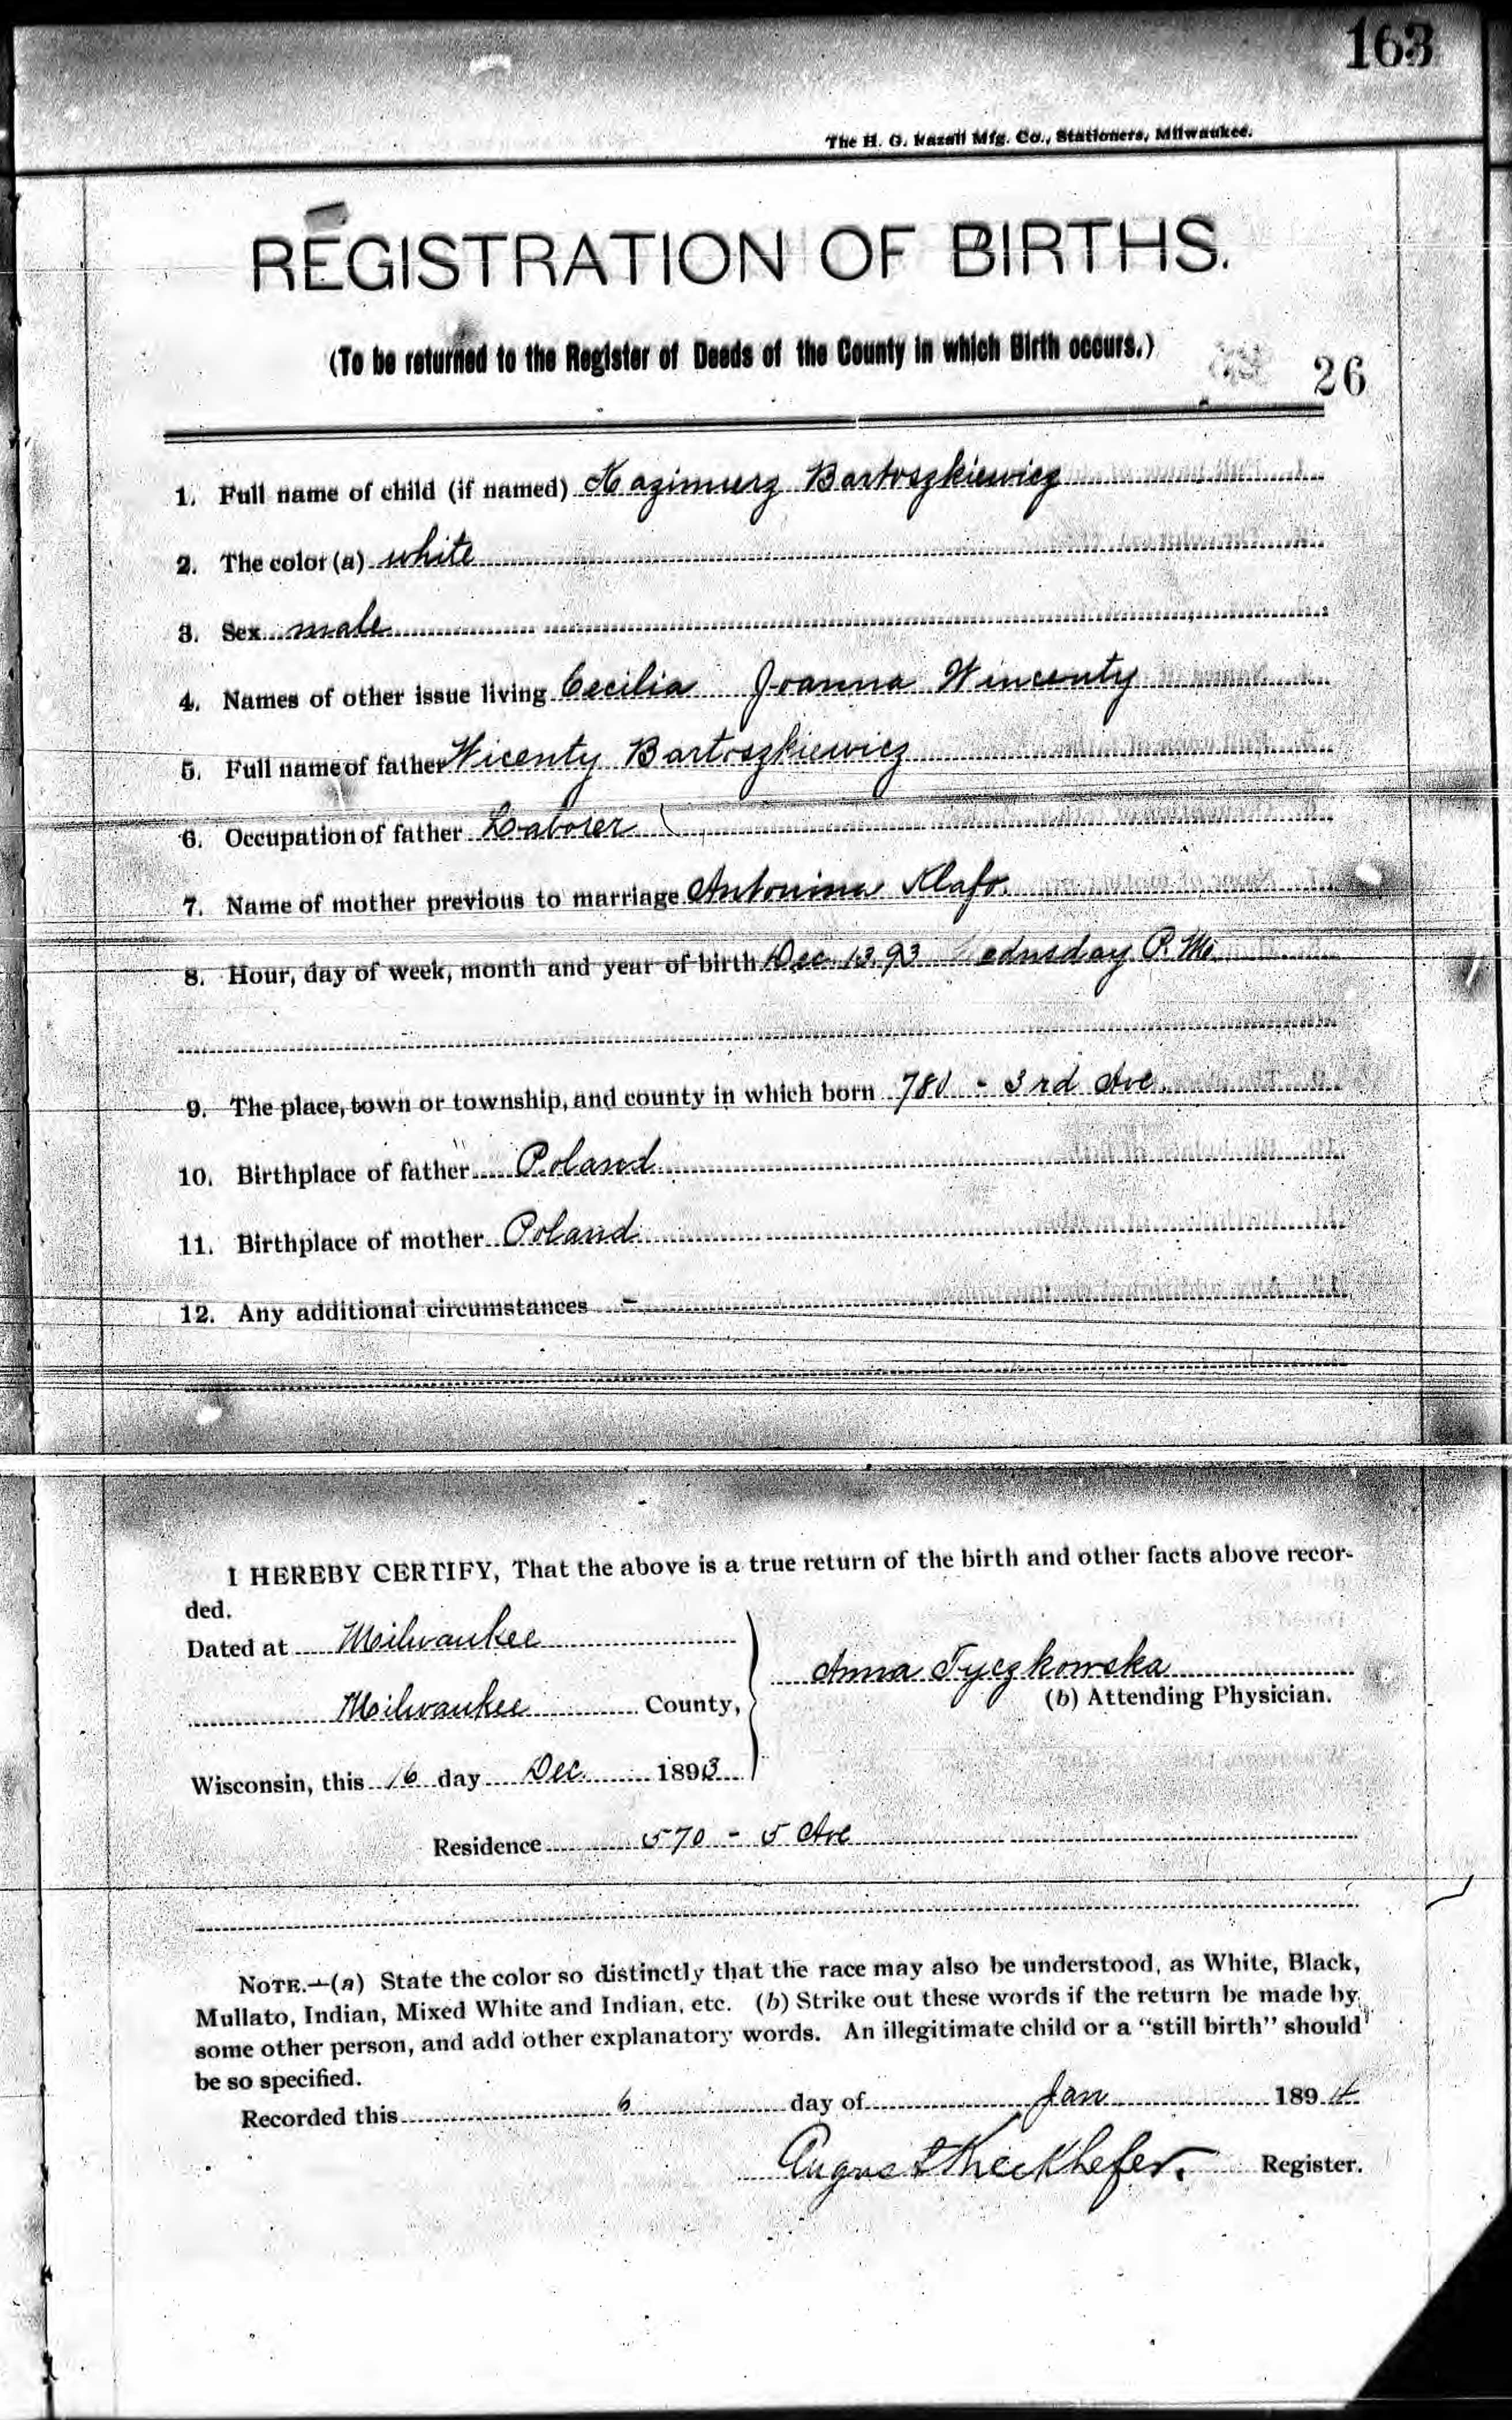 163
The H. G. Razall Mfg. Co., Stationers, Milwaukee.
REGISTRATION OF BIRTHS.
(To be returned to the Register of Deeds of the County in which Birth occurs.)
26
1. Full name of child (if named) Kazimierz Bartoszkiewicz
2. The color (a) white
3. Sex male
4. Names of other issue living Cecilia Joanna Wincenty
5. Full name of father Wicenty Bartoszkiewicz
6. Occupation of father Laborer
7. Name of mother previous to marriage Antonina
8. Hour, day of week, month and year of birth Dec 13 93 Wednsday P. M.
9. The place, town or township, and county in which born 781 - 3rd Ave
10. Birthplace of father Poland
11. Birthplace of mother Poland
12. Any additional circumstances -
I HEREBY CERTIFY, That the above is a true return of the birth and other facts above recor-
ded.
Dated at Milwaukee
Milwaukee County,
Anna Tyczkowska
(b) Attending Physician.
Wisconsin, this 16 day Dec. 1893
Residence 570 - 5 Ave
NOTE.—(a) State the color so distinctly that the race may also be understood, as White, Black,
Mullato, Indian, Mixed White and Indian, etc. (b) Strike out these words if the return be made by
some other person, and add other explanatory words. An illegitimate child or a "still birth" should
be so specified.
Recorded this 6 day of Jan 1894
August Kieckhefer. Register.